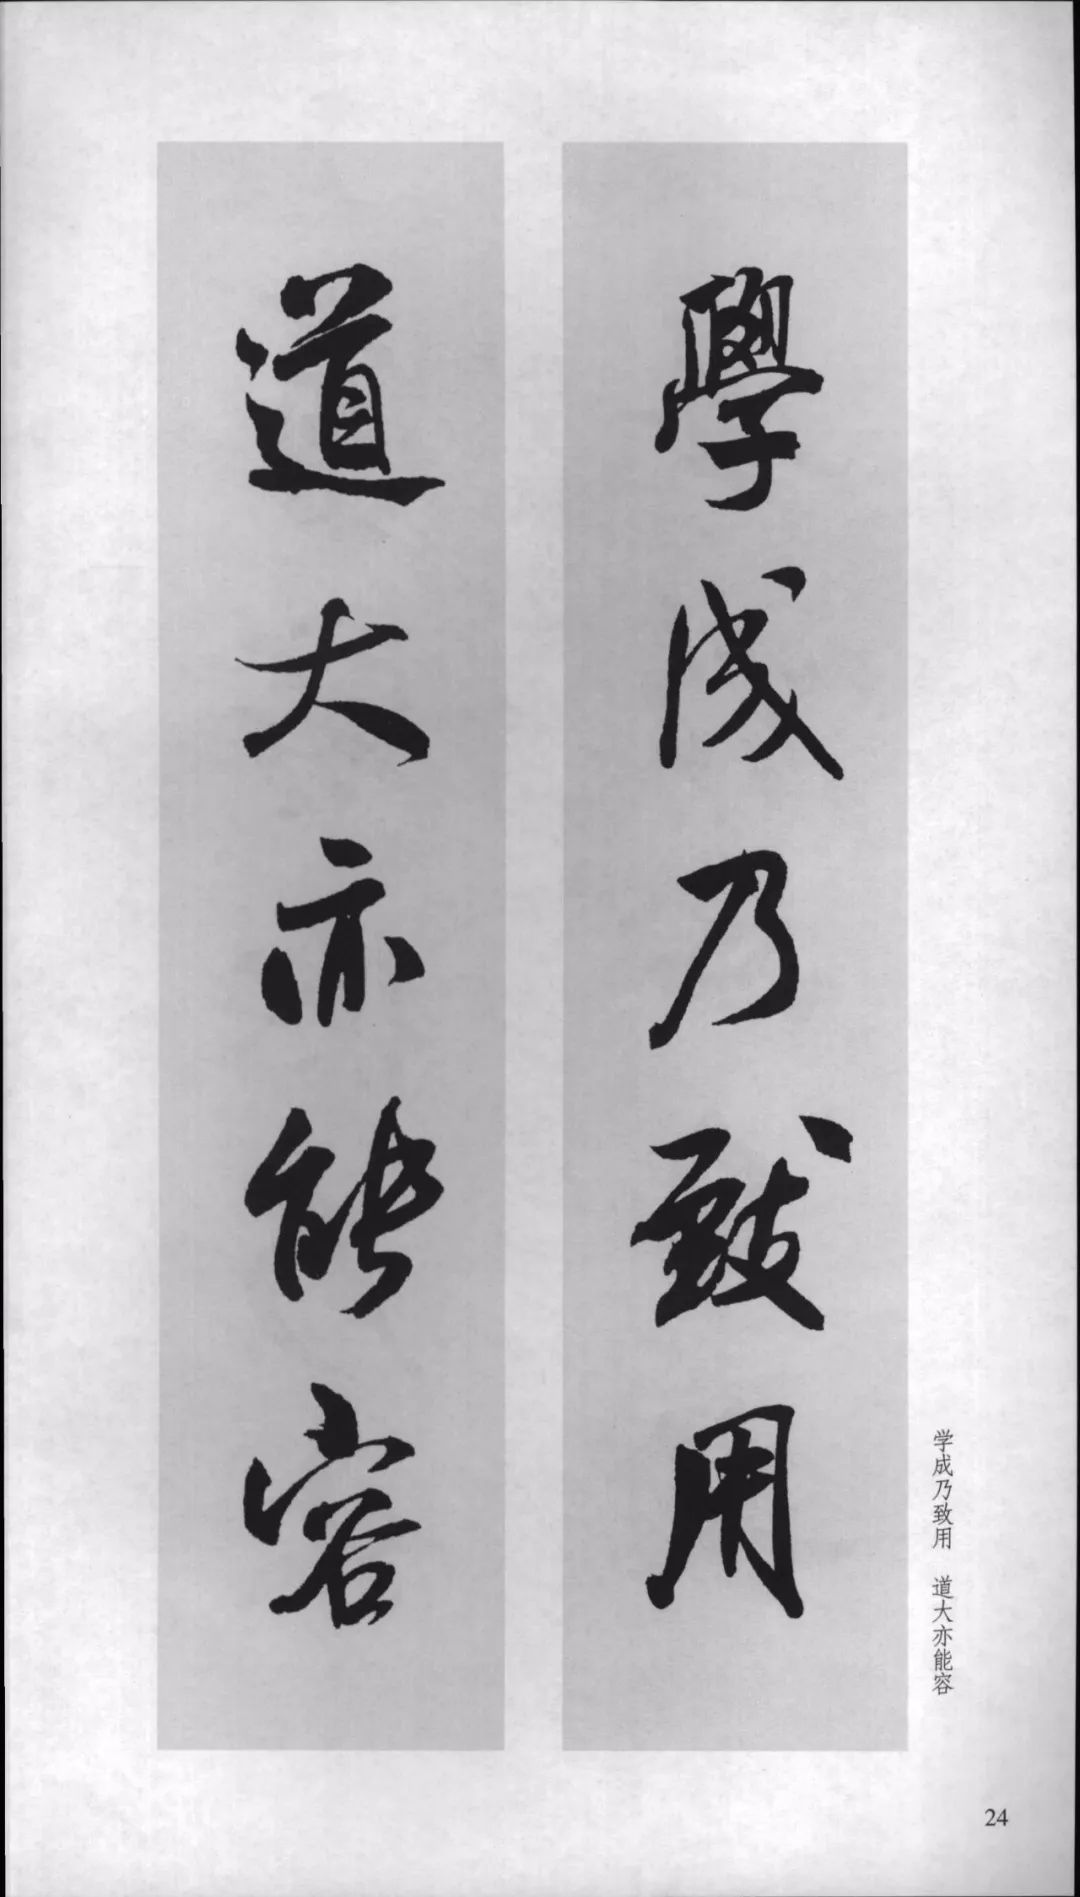 學成乃致用
道大亦能容
学成乃致用 道大亦能容
24